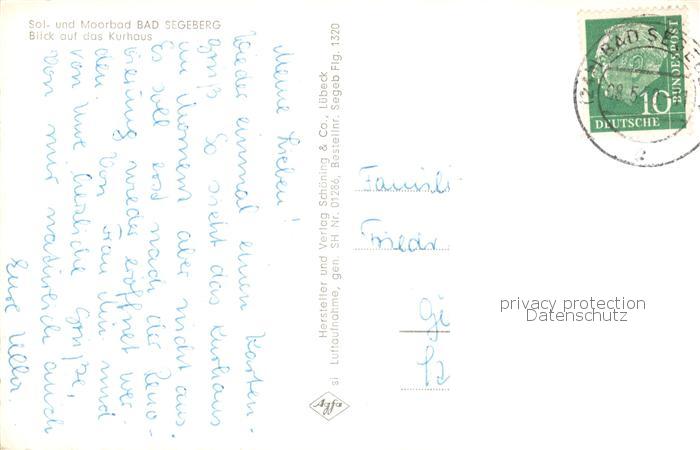 Sol- und Moorbad BAD SEGEBERG
Blick auf das Kurhaus
Meine Lieben!
Wieder einmal einen Karten-
gruß. So sieht das Kurhaus
im Moment aber nicht aus.
Es soll erst nach der Reno-
vierung wieder eröffnet wer-
den. Von Frau und
von Uwe herzliche Grüße,
von mir natürlich auch
Eure Ulla.
Hersteller und Verlag Schöning & Co., Lübeck
si Luftaufnahme, gen. SH. Nr. 01286, Bestellnr. Segeb Flg. 1320
Agfa
Famili
Friedr
BAD SE
DEUTSCHE
BUNDESPOST
10
privacy protection
Datenschutz